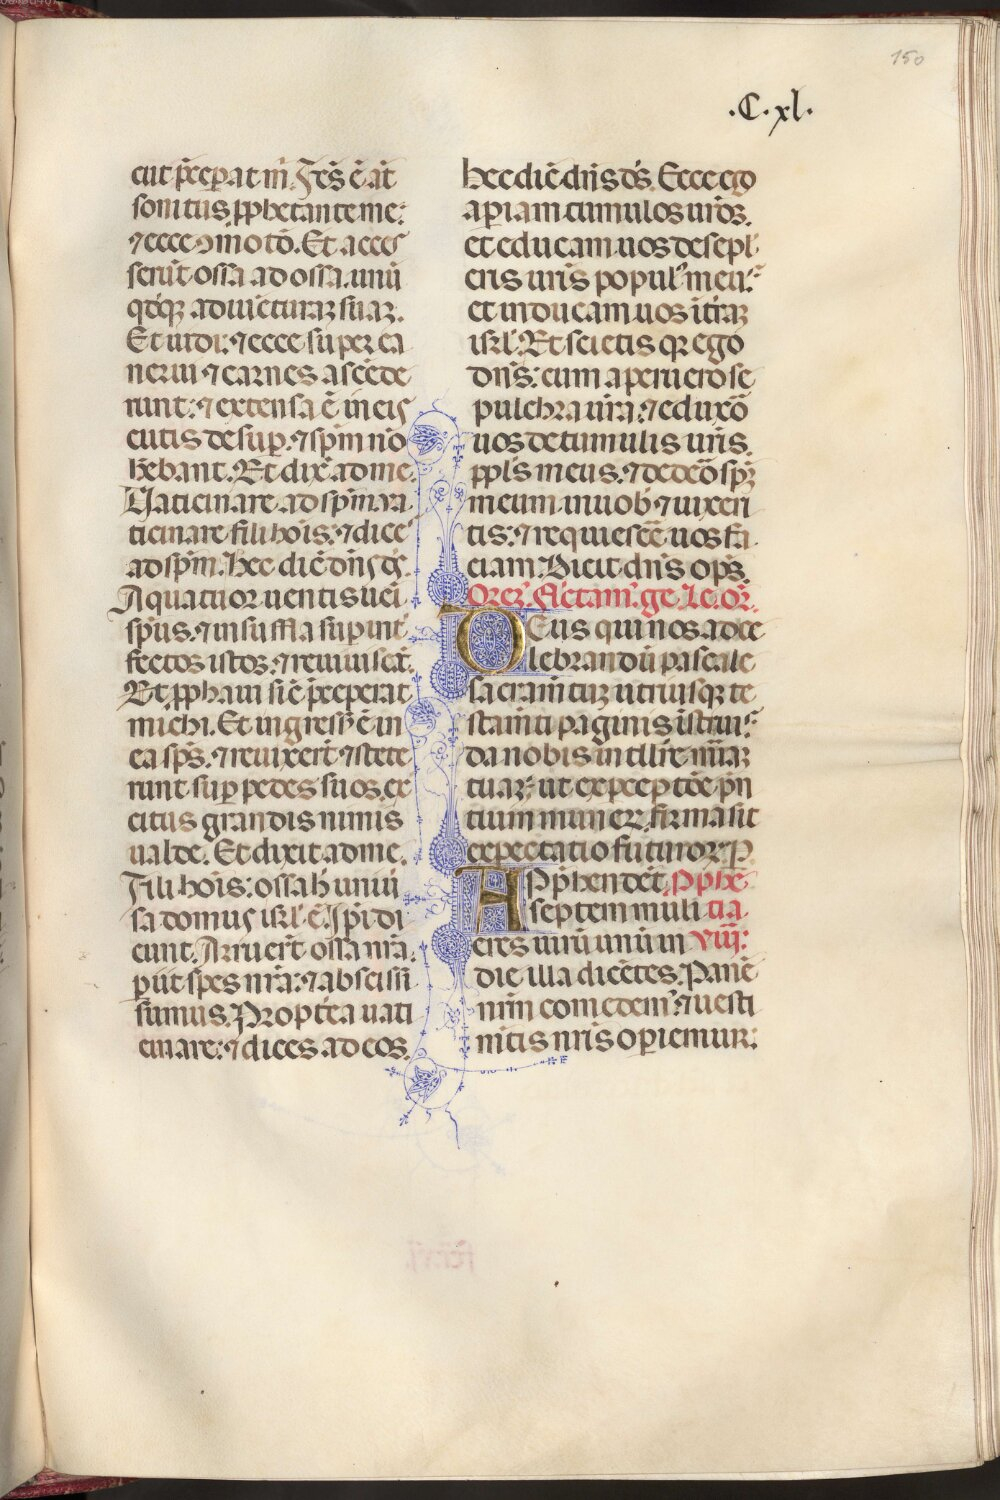 150
.C.xl.
cut p̄cep̄at m̄. Fc̄s ē āt
sonitus pp̄hetante me:
⁊ ecce ꝯmotō. Et acces
serūt ossa ad ossa. unū
qd̄qꝫ ad iūcturaꝫ suaꝫ.
Et uidi: ⁊ ecce super ea
nerui ⁊ carnes ascēde
runt: ⁊ extensa ē in eis
cutis desup̄. ⁊ sp̄m nō
hēbant. Et dix̄ ad me.
Uaticinare ad sp̄m. ua
ticinare fili hoīs: ⁊ dices
ad sp̄m. Hec dic̄ dn̄s ds̄.
A quatuor uentis uei
sp̄us. ⁊ insuffla sup̄ int̄
fectos istos. ⁊ reuiuiscāt.
Et pp̄haui sic̄ p̄ceperat
michi. Et ingress᷒ ē in
ea sp̄s. ⁊ reuixer̄t ⁊ stete
runt sup̄ pedes suos. ex̄
citus grandis nimis
ualde. Et dixit ad me.
Fili hoīs: ossa h̄ uniū
sa domus isrl̄ ē. Ip̄i di
cunt. Aruer̄t ossa nr̄a.
p̄iit spes nr̄a: ⁊ abscissi
sumus. Propt̄ea uati
cinare: ⁊ dices ad eos.
hec dic̄ dn̄s ds̄. Ecce ego
ap̄iam tumulos ur̄os.
et educam uos de sepl̄
cris ur̄is popul᷒ meu᷒:
et inducam uos ī tr̄aꝫ
isrl̄. Et scietis qꝛ ego
dn̄s: cum aperuero se
pulchra ur̄a: ⁊ eduxō
uos de tumulis ur̄is.
ppl̄s meus. ⁊ dedeō sp̄ꝫ
meum in uob̄ ⁊ uixeri
tis: ⁊ requiescē uos fa
ciam. Dicit dn̄s op̄s.
Orem᷒. Flectam᷒. ge. Le. or̄.
Deus qui nos ad ce
lebrandū pascale
sacram̄tuꝫ utriusqꝫ te
stam̄ti paginis īstrui᷒:
da nobis intll̄re mīaꝫ
tuaꝫ: ut ex p̄ceptōe p̄n
tium munerꝝ. firma sit
expectatio futuroꝝ. P̄
App̄hendēt Pp̄he
septem muli tia
eres uirū unū in viii:
die illa dicētes. Panē
nr̄m comedem᷒ ⁊ uesti
m̄tis nr̄is op̄iemur: